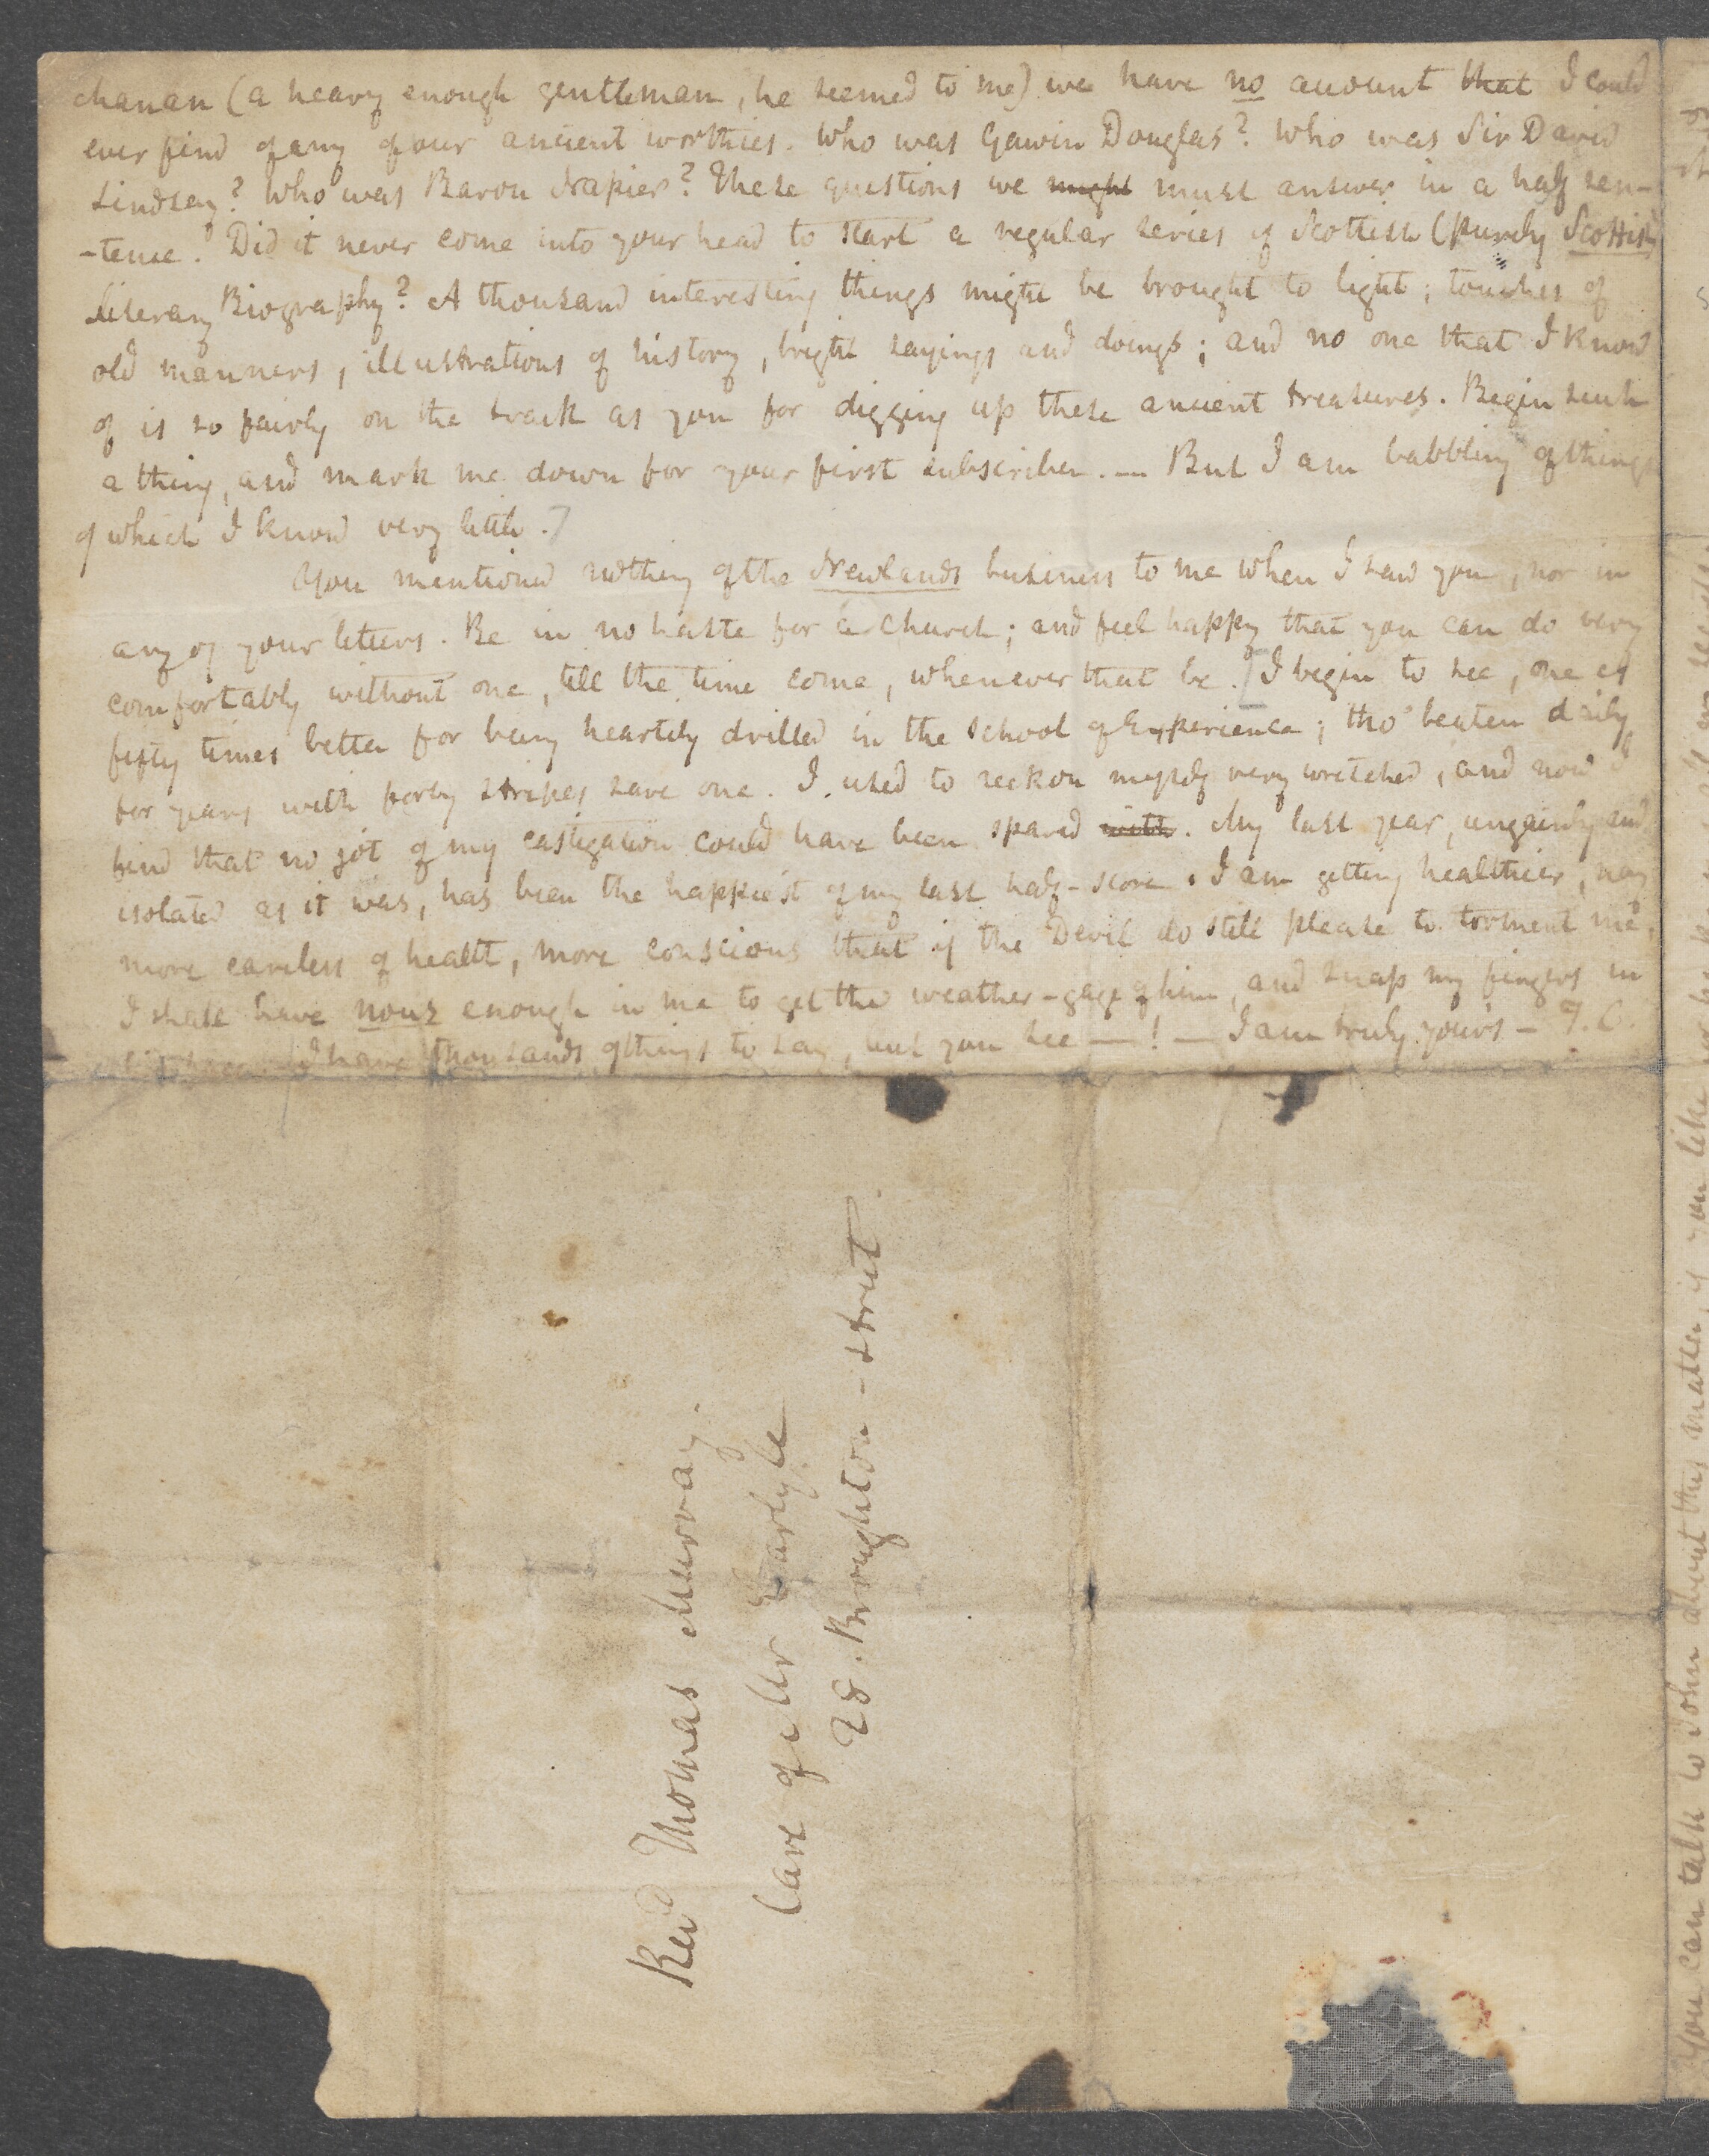 chanan (a heavy enough gentleman, he seemed to me) we have no account that I could
ever find of any of our ancient worthies. Who was Gawin Douglas? Who was Sir David
Lindsay? Who was Baron Napier? These questions we might must answer in a half sen-
-tence. Did it never come into your head to start a regular series of Scottish (purely Scottish)
literary Biography? A thousand interesting things might be brought to light; touches of
old manners, illustrations of history, bright sayings and doings; and no one that I know
of is so fairly on the track as you for digging up these ancient treasures. Begin such
a thing, and mark me down for your first subscriber. — But I am babbling of things
of which I know very little.]
You mentioned nothing of the Newlands business to me when I saw you, nor in
any of your letters. Be in no haste for a church; and feel happy that you can do very
comfortably without one, till the time come, whenever that be. [I begin to see, one is
fifty times better for being heartily drilled in the school of Experience; tho' beaten daily
for years with forty stripes save one. I used to reckon myself very wretched, and now I
find that no jot of my castigation could have been spared with. My last year, ungainly and
isolated as it was, has been the happiest of my last half-score. I am getting healthier, nay
more careless of health, more conscious that if the Devil do still please to torment me,
I shall have nous enough in me to get the weather-gage of him, and snap my fingers in
I have thousands of things to say, but you see — ! — I am truly yours — T. C.
Revd Thomas Murray
Care of Mr Carlyle
28. Broughton-street
You can talk to John about this matter, if you like